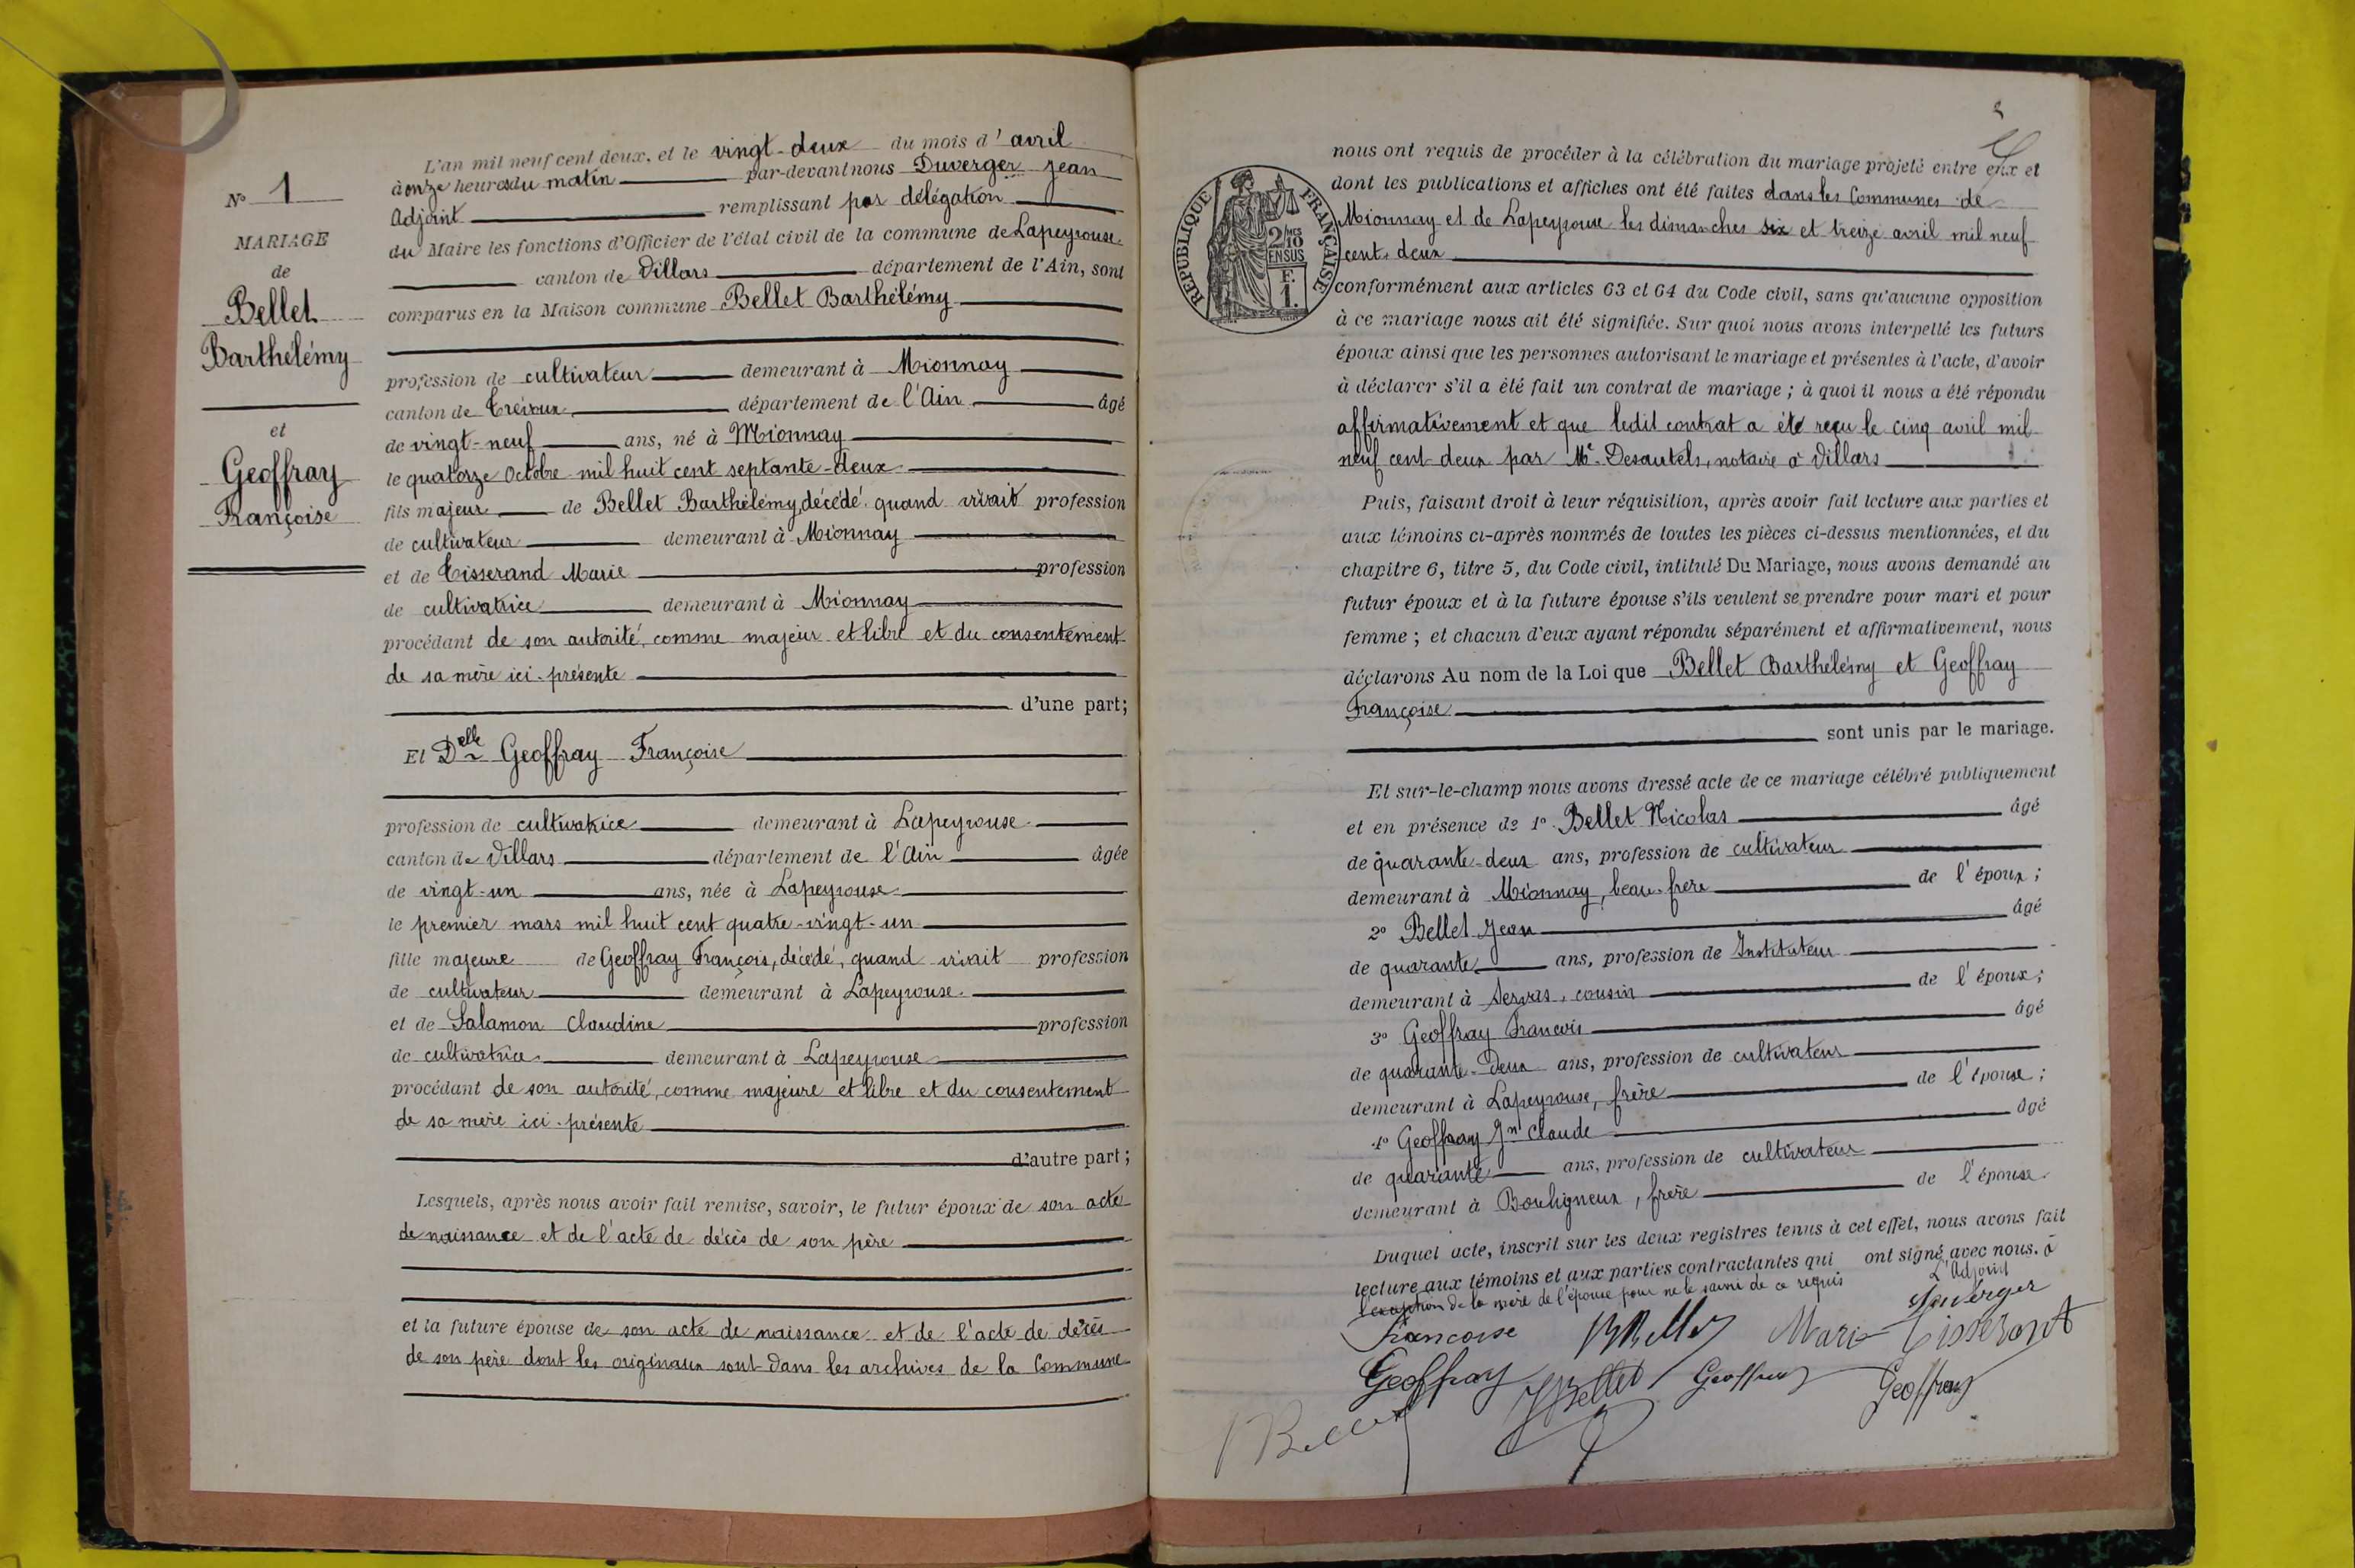 N° 1
MARIAGE
de
Bellet
Barthélémy
et
Geoffray
Françoise
L'an mil neuf cent deux, et le vingt-deux du mois d'avril
à onze heures du matin par-devant nous Duverger Jean
Adjoint remplissant par délégation
du Maire les fonctions d'Officier de l'état civil de la commune de Lapeyrouse
canton de Villars département de l'Ain, sont
comparus en la Maison commune Bellet Barthélémy
profession de cultivateur demeurant à Mionnay
canton de Trévoux département de l'Ain âgé
de vingt-neuf ans, né à Mionnay
le quatorze Octobre mil huit cent septante-deux
fils majeur de Bellet Barthélémy, décédé quand vivait profession
de cultivateur demeurant à Mionnay
et de Tisserand Marie profession
de cultivatrice demeurant à Mionnay
procédant de son autorité, comme majeur et libre et du consentement
de sa mère ici présente
d'une part;
Et Delle Geoffray Françoise
profession de cultivatrice demeurant à Lapeyrouse
canton de Villars département de l'Ain âgée
de vingt-un ans, née à Lapeyrouse
le premier mars mil huit cent quatre-vingt-un
fille majeure de Geoffray François, décédé, quand vivait profession
de cultivateur demeurant à Lapeyrouse
et de Salamon Claudine profession
de cultivatrice demeurant à Lapeyrouse
procédant de son autorité, comme majeure et libre et du consentement
de sa mère ici présente
d'autre part;
Lesquels, après nous avoir fait remise, savoir, le futur époux de son acte
de naissance et de l'acte de décès de son père
et la future épouse de son acte de naissance et de l'acte de décès
de son père dont les originaux sont dans les archives de la Commune
RÉPUBLIQUE FRANÇAISE
2/10 MES
EN SUS
F.
1.
nous ont requis de procéder à la célébration du mariage projeté entre eux et
dont les publications et affiches ont été faites dans les Communes de
Mionnay et de Lapeyrouse les dimanches six et treize avril mil neuf
cent deux
conformément aux articles 63 et 64 du Code civil, sans qu'aucune opposition
à ce mariage nous ait été signifiée. Sur quoi nous avons interpellé les futurs
époux ainsi que les personnes autorisant le mariage et présentes à l'acte, d'avoir
à déclarer s'il a été fait un contrat de mariage ; à quoi il nous a été répondu
affirmativement et que ledit contrat a été reçu le cinq avril mil
neuf cent deux par Me Desautels, notaire à Villars
Puis, faisant droit à leur réquisition, après avoir fait lecture aux parties et
aux témoins ci-après nommés de toutes les pièces ci-dessus mentionnées, et du
chapitre 6, titre 5, du Code civil, intitulé Du Mariage, nous avons demandé au
futur époux et à la future épouse s'ils veulent se prendre pour mari et pour
femme ; et chacun d'eux ayant répondu séparément et affirmativement, nous
déclarons Au nom de la Loi que Bellet Barthélémy et Geoffray
Françoise
sont unis par le mariage.
Et sur-le-champ nous avons dressé acte de ce mariage célébré publiquement
et en présence de 1° Bellet Nicolas âgé
de quarante-deux ans, profession de cultivateur
demeurant à Mionnay, beau-frère de l'époux ;
2° Bellet Jean âgé
de quarante ans, profession de Instituteur
demeurant à Servas, cousin de l'époux ;
3° Geoffray Francois âgé
de quarante-deux ans, profession de cultivateur
demeurant à Lapeyrouse, frère de l'épouse ;
4° Geoffray Jn Claude âgé
de quarante ans, profession de cultivateur
demeurant à Bouligneux, frère de l'épouse.
Duquel acte, inscrit sur les deux registres tenus à cet effet, nous avons fait
lecture aux témoins et aux parties contractantes qui ont signé avec nous. à
l'exception de la mère de l'épouse pour ne le savoir de ce requis
L'Adjoint
Duverger
Francoise BBellet Marie Tisserant
Geoffray JBellet Geoffray Geoffray
Bellet